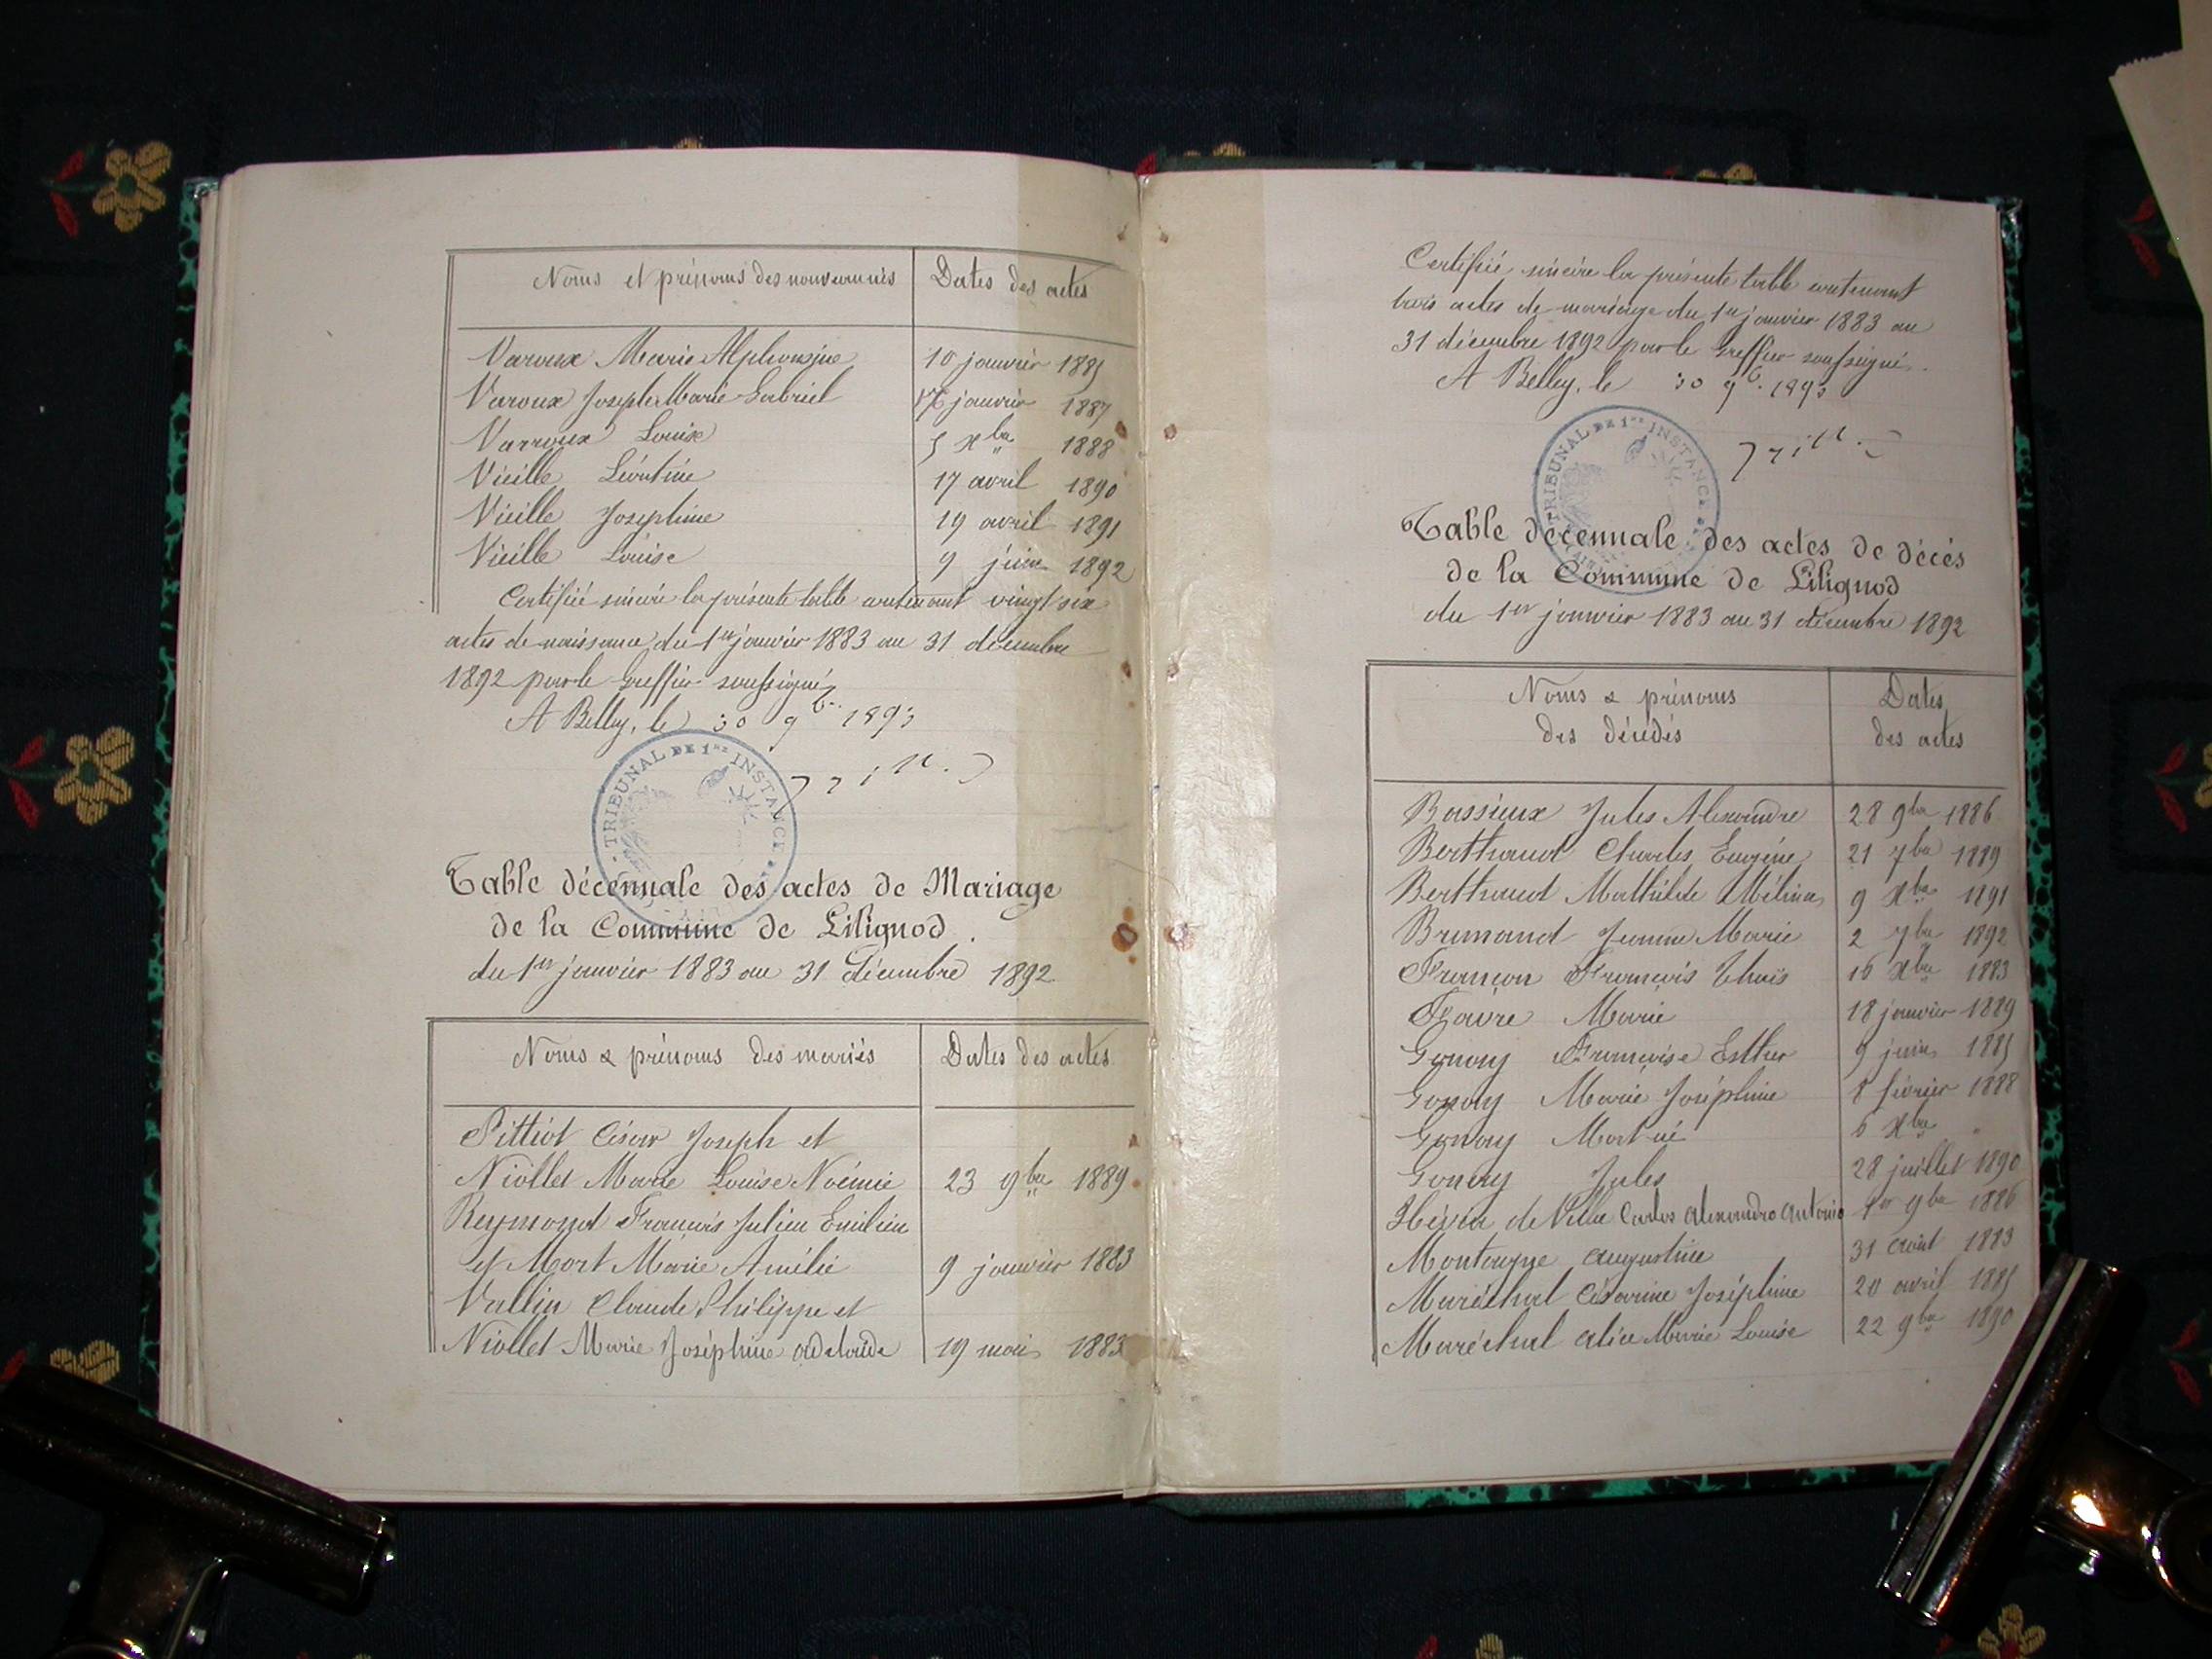 Noms et prénoms des nouveaunés Dates des actes
Varoux Marie Alphonsine 10 janvier 1885
Varoux Joseph Marie Gabriel janvier 1887
Varroux Louise 5 Xbre 1888
Vieille Léontine 17 avril 1890
Vieille Joséphine 19 avril 1891
Vieille Louise 9 juin 1892
Certifié sincère la présente table contenant vingt six
actes de naissance du 1er janvier 1883 au 31 décembre
1892 par le Greffier soussigné
A Belley, le 30 9b. 1893
TRIBUNAL DE 1re INSTANCE
Table décennale des actes de Mariage
de la Commune de Lilignod.
du 1er janvier 1883 au 31 décembre 1892
Noms & prénoms des mariés Dates des actes
Pittiot César Joseph et
Niollet Marie Louise Noémie 23 9bre 1889
Reymond François Julien Emilien
et Mort Marie Amélie 9 janvier 1883
Vallin Claude Philippe et
Niollet Marie Joséphine Adelaïde 19 mai 1883
Certifié sincère la présente table contenant
trois actes de mariage du 1er janvier 1883 au
31 décembre 1892 par le Greffier soussigné.
A Belley, le 30 9b. 1893
TRIBUNAL DE 1re INSTANCE
Table décennale des actes de décès
de la Commune de Lilignod
du 1er janvier 1883 au 31 décembre 1892
Noms & prénoms Dates
des décédés des actes
Bassieux Jules Alexandre 28 9bre 1886
Berthaud Charles Eugène 21 7bre 1889
Berthaud Mathilde Mélina 9 Xbre 1891
Brunand Jeanne Marie 2 7bre 1892
Françon François Thaïs 16 Xbre 1883
Favre Marie 18 janvier 1889
Gonay Françoise Esther 9 juin 1885
Gonay Marie Joséphine 8 février 1888
Gonay Mort né 6 Xbre "
Gonay Jules 28 juillet 1890
de Carlos Alexandro Antonio 1er 9bre 1886
Montagne Augustine 31 Août 1883
Maréchal Césarine Joséphine 20 avril 1885
Maréchal Alice Marie Louise 22 9bre 1890